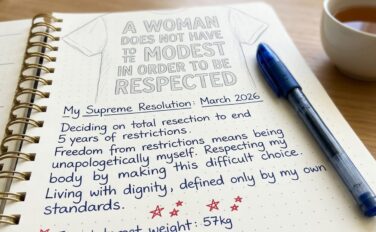 A WOMAN
DOES NOT HAVE
TO TE MODEST
IN ORDER TO BE
RESPECTED
My Supreme Resolution: March 2026
Deciding on total resection to end
5 years of restrictions.
Freedom from restrictions means being
unapologetically myself. Respecting my
body by making this difficult choice.
Living with dignity, defined only by my own
standards.
weight: 57kg